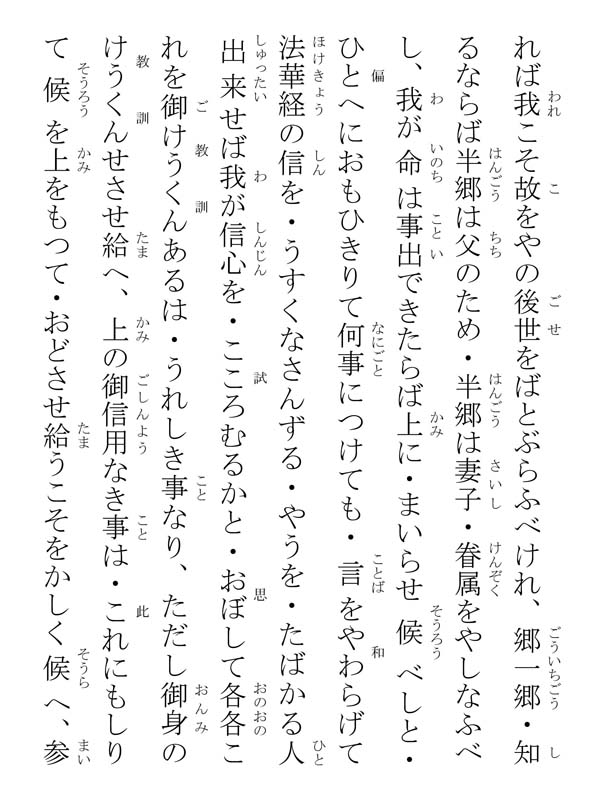 れば我こそ故をやの後世をばとぶらふべけれ、郷一郷・知
るならば半郷は父のため・半郷は妻子・眷属をやしなふべ
し、我が命は事出できたらば上に・まいらせ候べしと・
ひとへにおもひきりて何事につけても・言をやわらげて
法華経の信を・うすくなさんずる・やうを・たばかる人
出来せば我が信心を・こころむるかと・おぼして各各こ
れを御けうくんあるは・うれしき事なり、ただし御身の
けうくんせさせ給へ、上の御信用なき事は・これにもしり
て候を上をもつて・おどさせ給うこそをかしく候へ、参